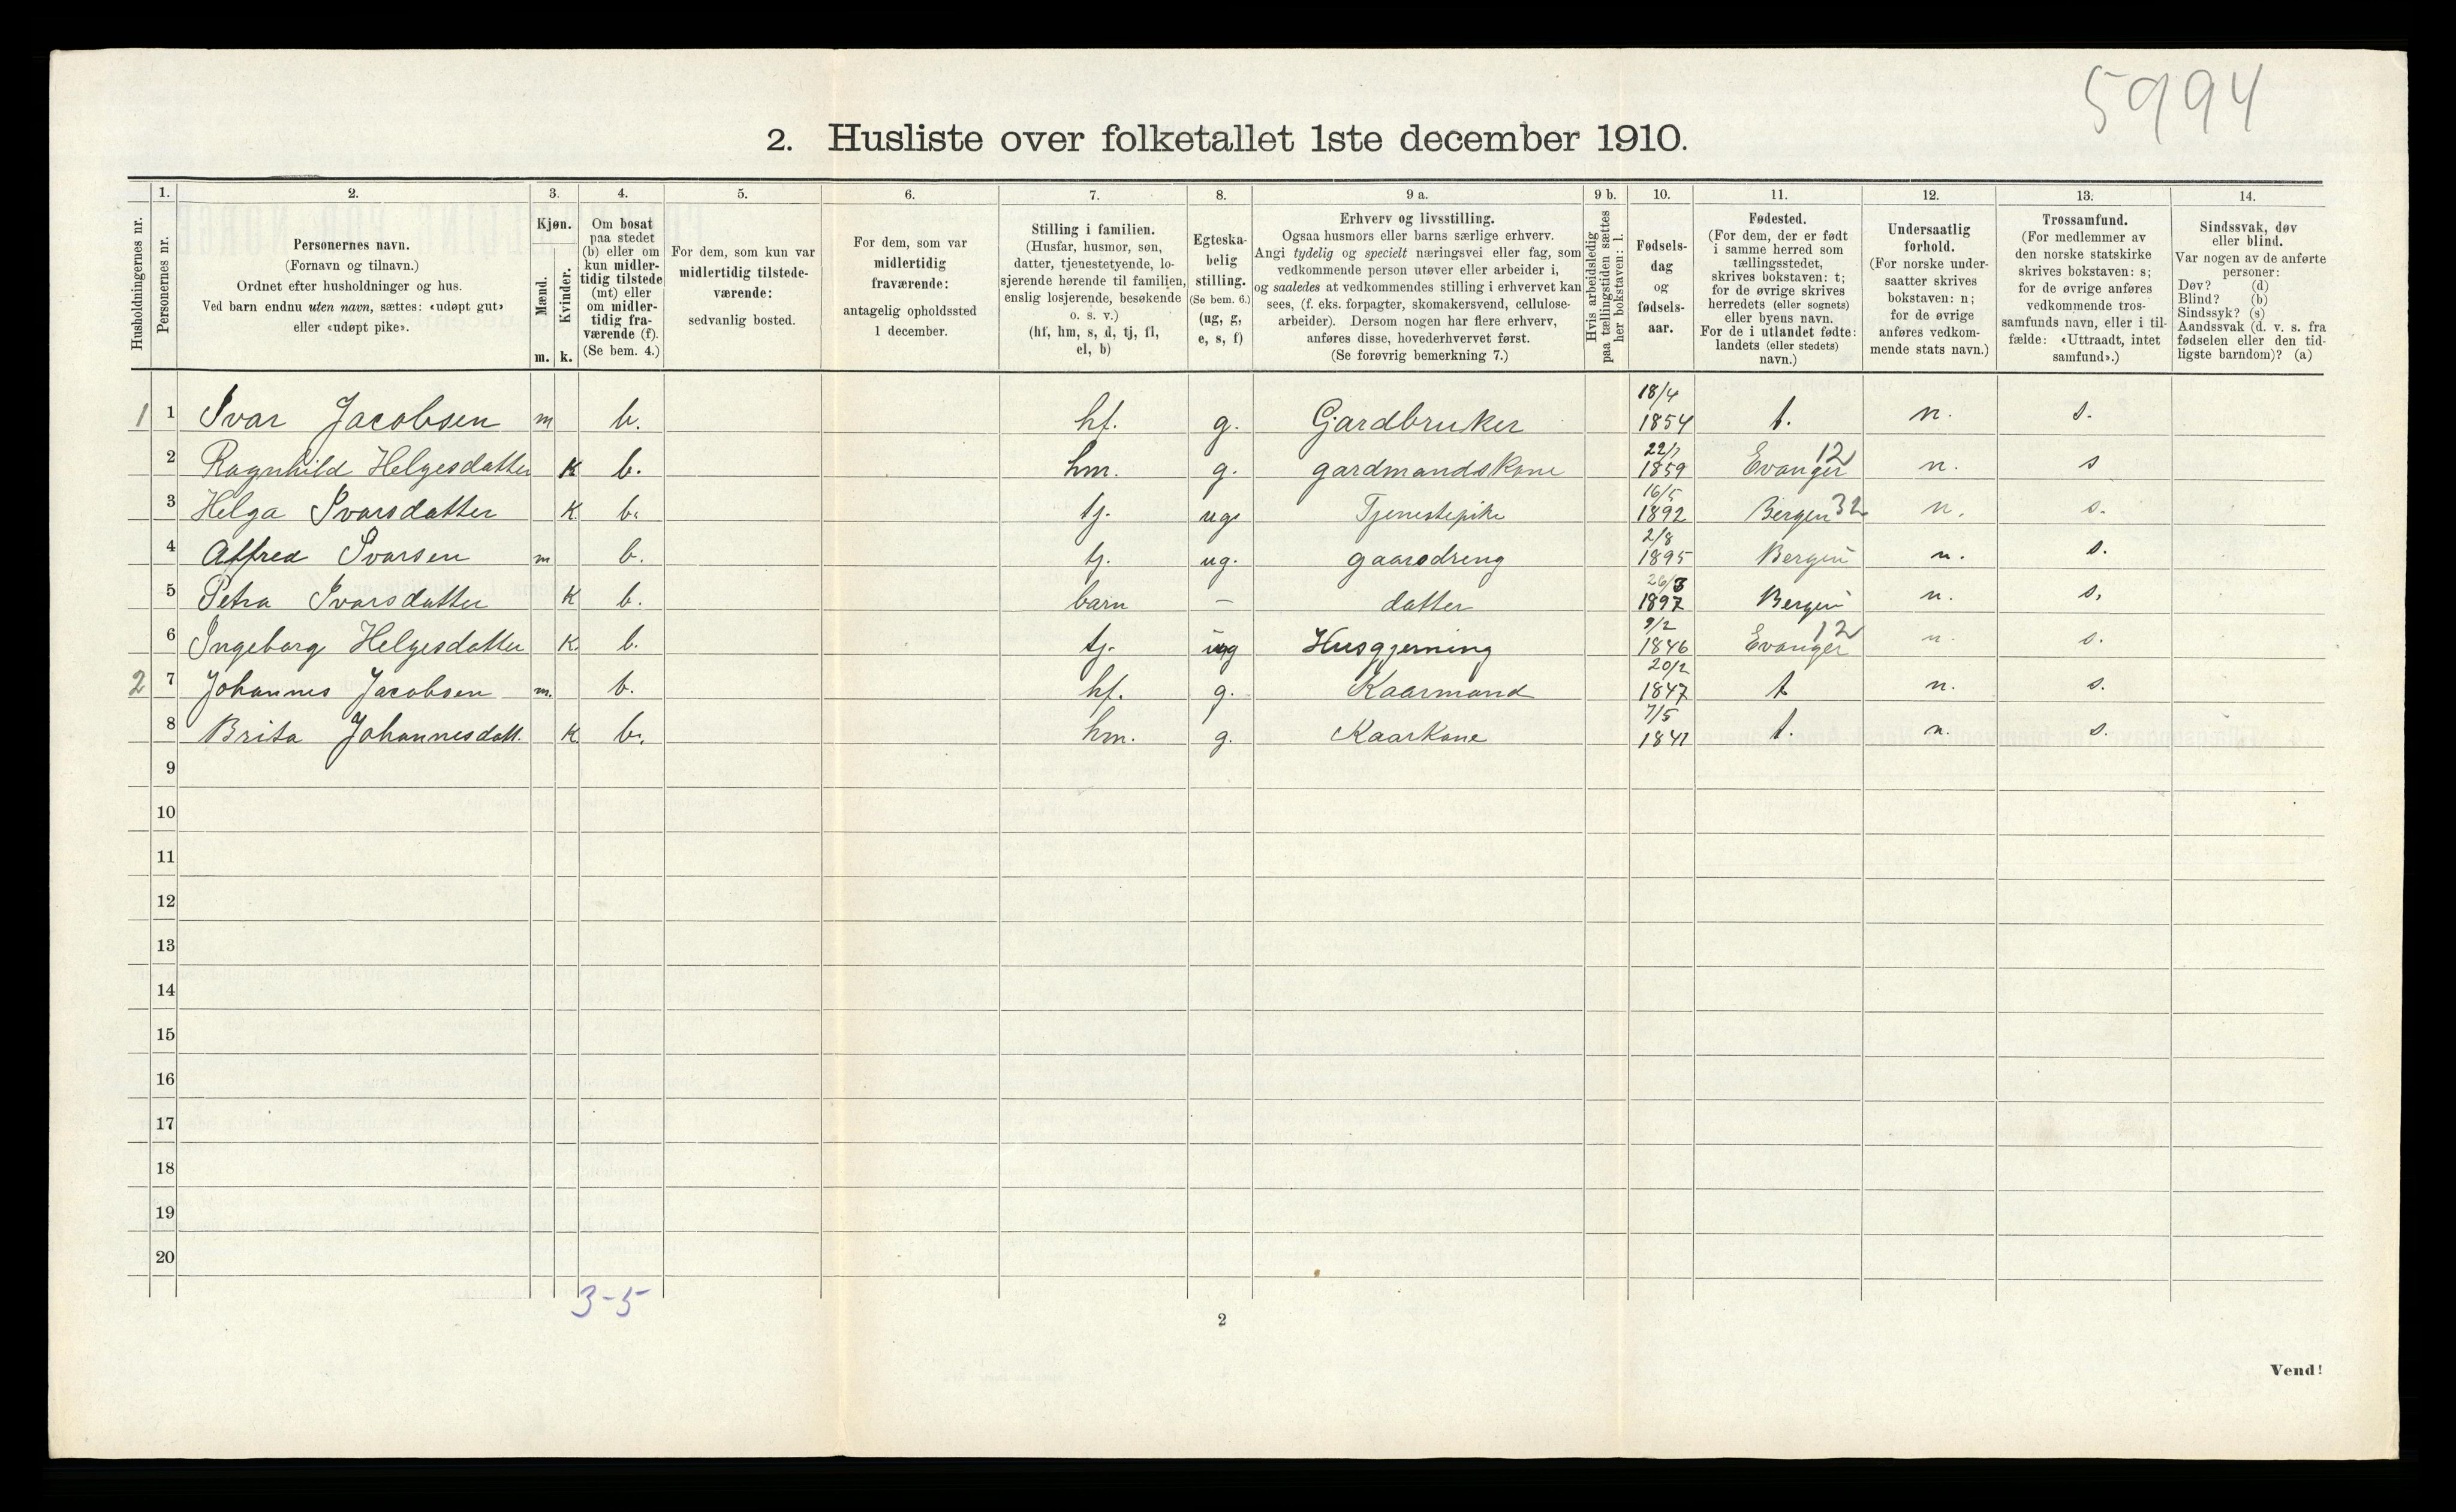 5994
2. Husliste over folketallet 1ste december 1910.
1. 2. 3. 4. 5. 6. 7. 8. 9 a. 9 b. 10. 11. 12. 13. 14.
Husholdningernes nr.
Personernes nr.
Personernes navn.
(Fornavn og tilnavn.)
Ordnet efter husholdninger og hus.
Ved barn endnu uten navn, sættes: «udøpt gut»
eller «udøpt pike».
Kjøn.
Mænd.
Kvinder.
m. k.
Om bosat
paa stedet
(b) eller om
kun midler-
tidig tilstede
(mt) eller
om midler-
tidig fra-
værende (f).
(Se bem. 4.)
For dem, som kun var
midlertidig tilstede-
værende:
sedvanlig bosted.
For dem, som var
midlertidig
fraværende:
antagelig opholdssted
1 december.
Stilling i familien.
(Husfar, husmor, søn,
datter, tjenestetyende, lo-
sjerende hørende til familien,
enslig losjerende, besøkende
o. s. v.)
(hf, hm, s, d, tj, fl,
el, b)
Egteska-
belig
stilling.
(Se bem. 6.)
(ug, g,
e, s, f)
Erhverv og livsstilling.
Ogsaa husmors eller barns særlige erhverv.
Angi tydelig og specielt næringsvei eller fag, som
vedkommende person utøver eller arbeider i,
og saaledes at vedkommendes stilling i erhvervet kan
sees, (f. eks. forpagter, skomakersvend, cellulose-
arbeider). Dersom nogen har flere erhverv,
anføres disse, hovederhvervet først.
(Se forøvrig bemerkning 7.)
Hvis arbeidsledig
paa tællingstiden sættes
her bokstaven: l.
Fødsels-
dag
og
fødsels-
aar.
Fødested.
(For dem, der er født
i samme herred som
tællingsstedet,
skrives bokstaven: t;
for de øvrige skrives
herredets (eller sognets)
eller byens navn.
For de i utlandet fødte:
landets (eller stedets)
navn.)
Undersaatlig
forhold.
(For norske under-
saatter skrives
bokstaven: n;
for de øvrige
anføres vedkom-
mende stats navn.)
Trossamfund.
(For medlemmer av
den norske statskirke
skrives bokstaven: s;
for de øvrige anføres
vedkommende tros-
samfunds navn, eller i til-
fælde: «Uttraadt, intet
samfund».)
Sindssvak, døv
eller blind.
Var nogen av de anførte
personer:
Døv? (d)
Blind? (b)
Sindssyk? (s)
Aandssvak (d. v. s. fra
fødselen eller den tid-
ligste barndom)? (a)
1 1 Ivar Jacobsen m b. hf. g. Gardbruker 18/4 1854 t. n. s.
2 Ragnhild Helgesdatter K b. hm. g. gardmandskone 22/7 1859 Evanger 12 n. s
3 Helga Ivarsdatter K b. tj. ug. Tjenestepike 16/5 1892 Bergen 32 n. s.
4 Alfred Ivarsen m b. tj. ug. gaarsdreng 2/8 1895 Bergen n. s.
5 Petra Ivarsdatter K b. barn — datter 26/3 1897 Bergen n. s.
6 Ingeborg Helgesdatter K b. tj. ug Husgjerning 9/2 1846 Evanger 12 n. s.
2 7 Johannes Jacobsen m. b. hf. g. Kaarmand 20/2 1847 t n. s.
8 Brita Johannesdatt. K b. hm. g. Kaarkone 7/5 1841 t. n. s.
9
10
11
12
13
14
15
16
17
18
19
20
3-5
2
Vend!